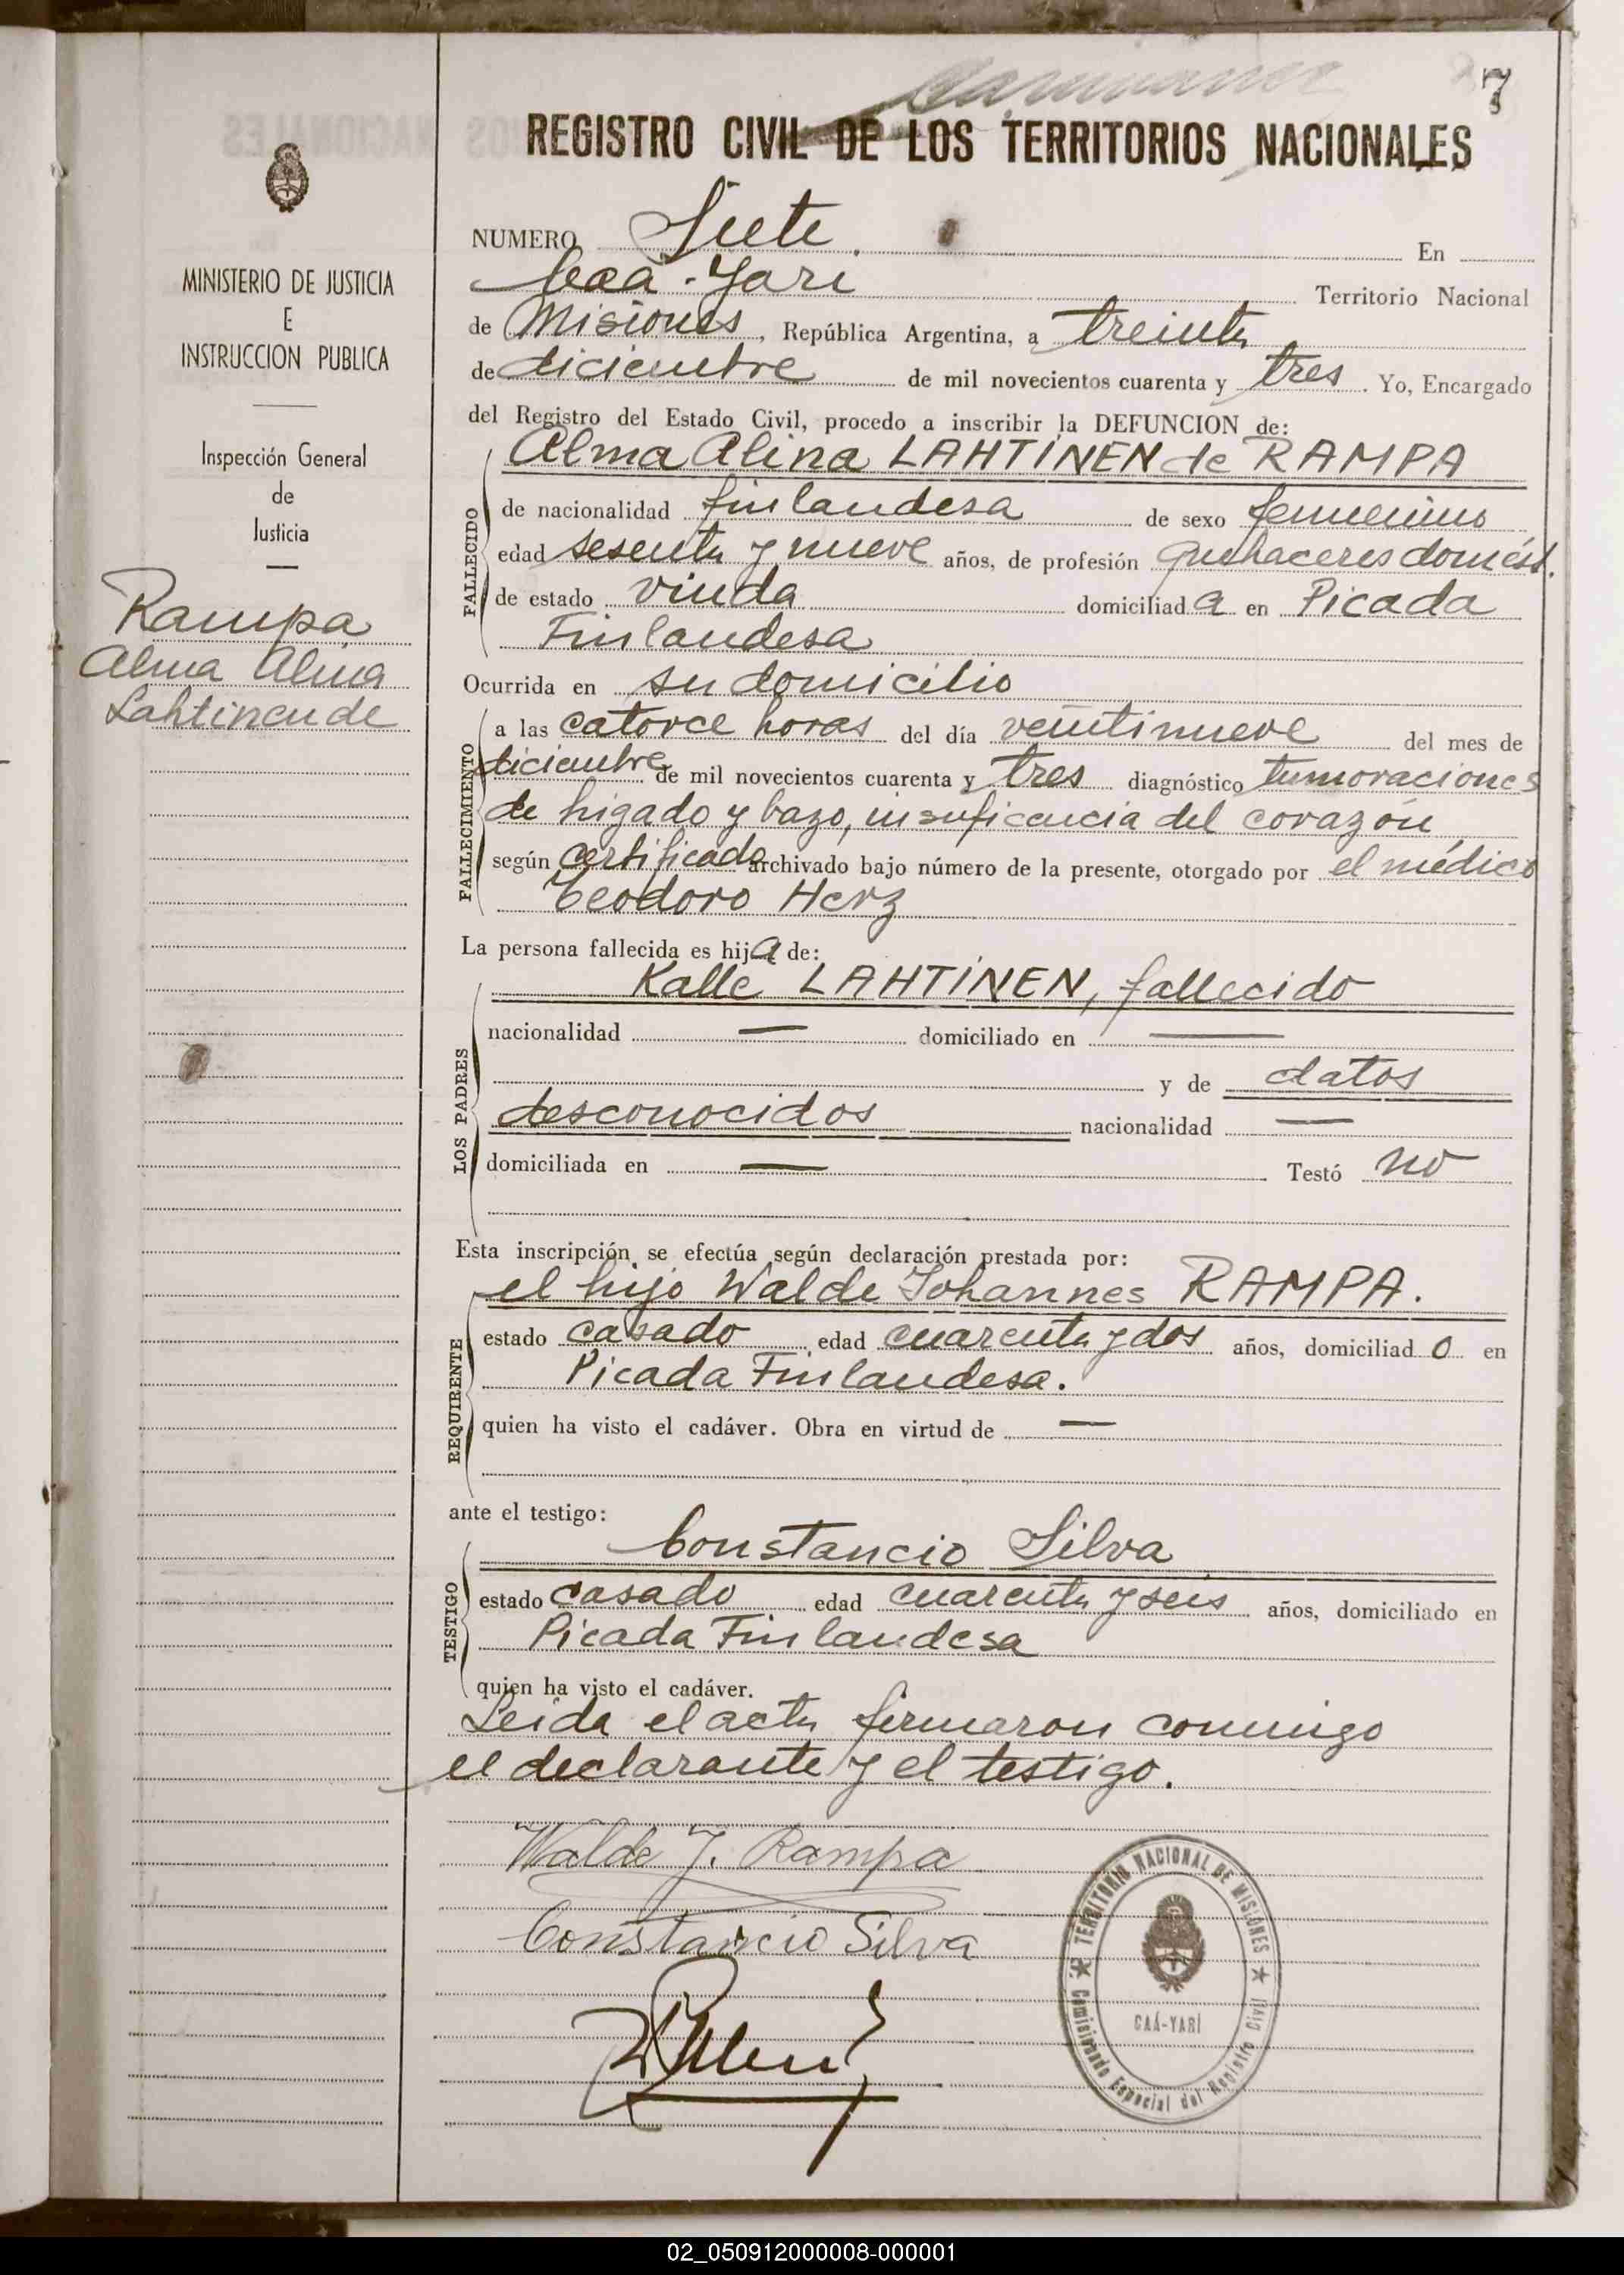 7
REGISTRO CIVIL DE LOS TERRITORIOS NACIONALES
MINISTERIO DE JUSTICIA
E
INSTRUCCION PUBLICA
Inspección General
de
Justicia
Rampa
Alma Alina
Lahtinen de
NUMERO Siete. En
Caá-Yarí Territorio Nacional
de Misiones, República Argentina, a treinta
de diciembre de mil novecientos cuarenta y tres. Yo, Encargado
del Registro del Estado Civil, procedo a inscribir la DEFUNCION de:
FALLECIDO
Alma Alina LAHTINEN de RAMPA
de nacionalidad finlandesa de sexo femenino
edad sesenta y nueve años, de profesión quehaceres domést.
de estado viuda domiciliada en Picada
Finlandesa
Ocurrida en su domicilio
FALLECIMIENTO
a las catorce horas del día veintinueve del mes de
diciembre de mil novecientos cuarenta y tres diagnóstico tumoraciones
de hígado y bazo, insuficiencia del corazón
según certificado archivado bajo número de la presente, otorgado por el médico
Teodoro Herz
La persona fallecida es hija de:
LOS PADRES
Kalle LAHTINEN, fallecido
nacionalidad — domiciliado en —
y de datos
desconocidos nacionalidad —
domiciliada en — Testó no
Esta inscripción se efectúa según declaración prestada por:
REQUIRENTE
el hijo Walde Johannes RAMPA.
estado casado edad cuarenta y dos años, domiciliado en
Picada Finlandesa.
quien ha visto el cadáver. Obra en virtud de —
ante el testigo:
TESTIGO
Constancio Silva
estado casado edad cuarenta y seis años, domiciliado en
Picada Finlandesa
quien ha visto el cadáver.
Leída el acta firmaron conmigo
el declarante y el testigo.
Walde J. Rampa
Constancio Silva
TERRITORIO NACIONAL DE MISIONES
CAÁ-YARÍ
Comisionado Especial del Registro Civil
02_050912000008-000001